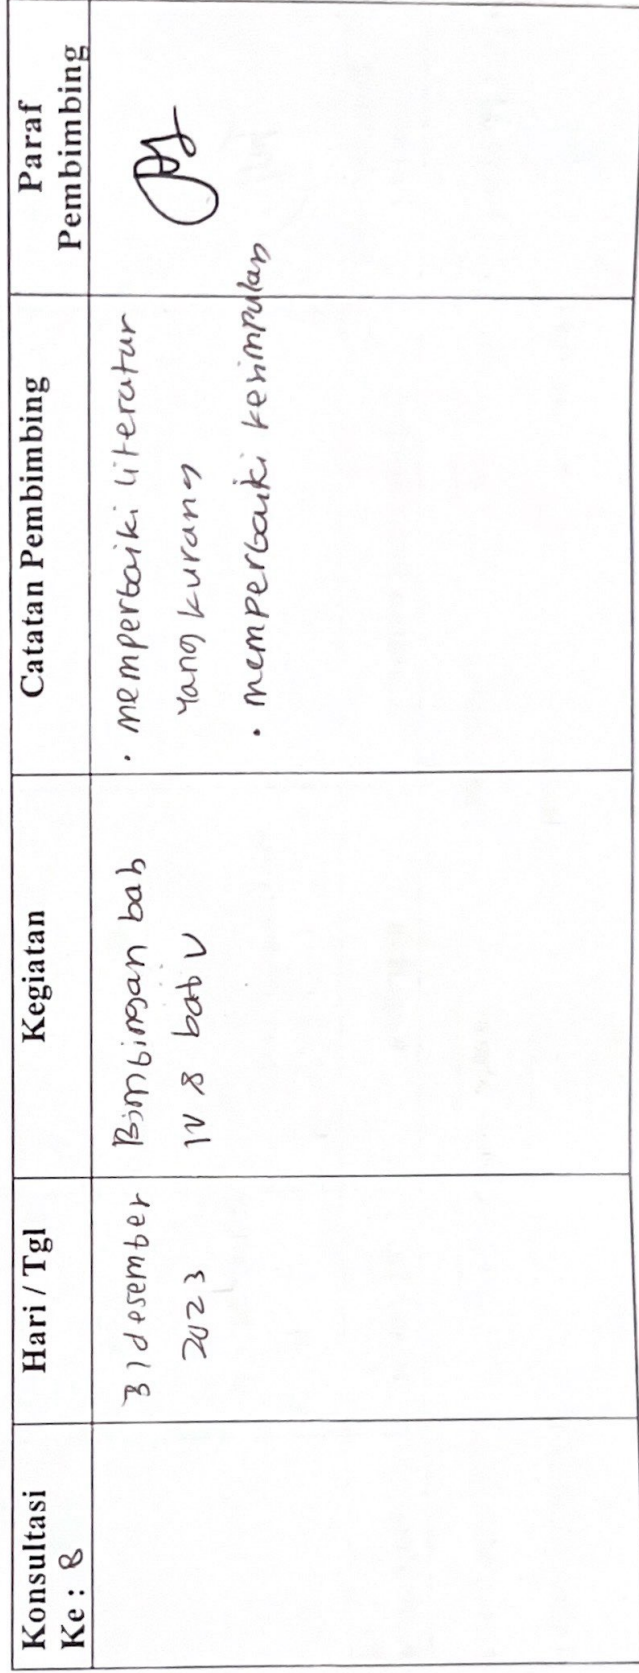 Konsultasi
Ke : 8
Hari / Tgl
Kegiatan
Catatan Pembimbing
Paraf
Pembimbing
31 desember
2023
Bimbingan bab
IV & bab V
• memperbaiki literatur
yang kurang
• memperbaiki kesimpulan